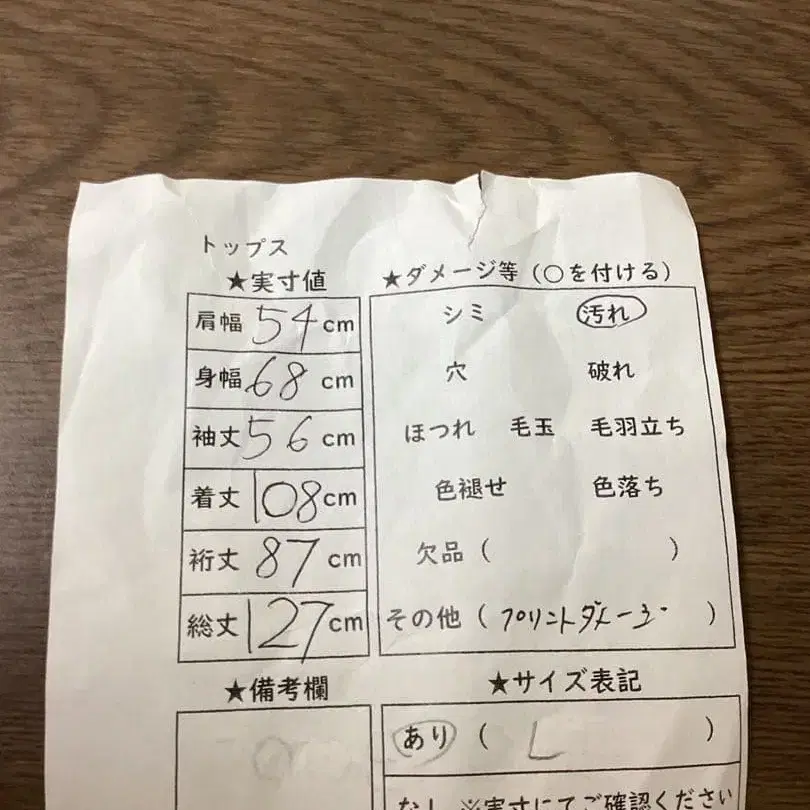 トップス
★実寸値
肩幅 54 cm
身幅 68 cm
袖丈 56 cm
着丈 108 cm
裄丈 87 cm
総丈 127 cm
★ダメージ等（○を付ける）
シミ 汚れ
穴 破れ
ほつれ 毛玉 毛羽立ち
色褪せ 色落ち
欠品（ ）
その他（プリントダメージ）
★備考欄
★サイズ表記
あり（ L ）
なし ※実寸にてご確認ください